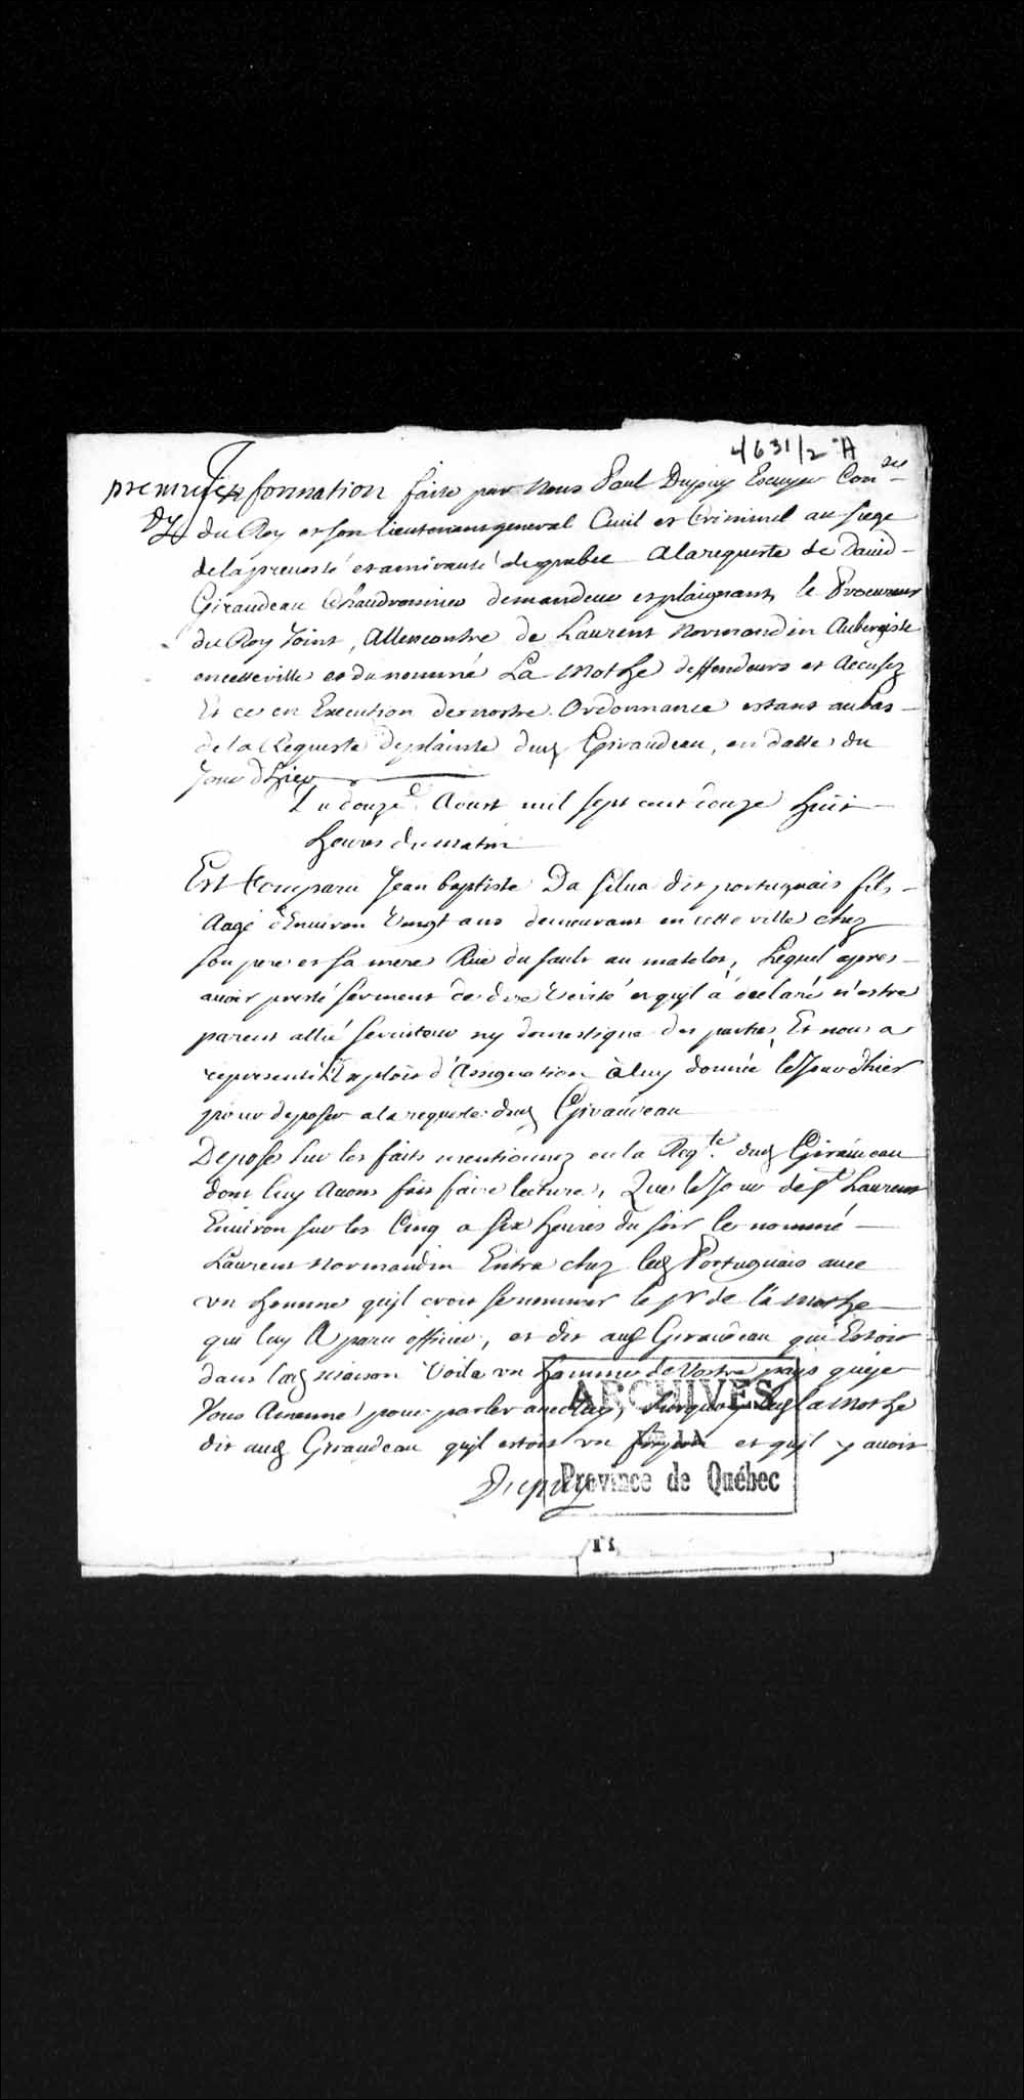 4631/2 A
premiere Information faite par Nous Paul Dupuy Escuyer Con.er
du Roy et son lieutenant general Civil et Criminel au siege
de la prevosté et amirauté de quebec A la requeste de David
Giraudeau Chaudronnier demandeur et plaignant, le Procureur
du Roy Joint, Allencontre de Laurent Normandin Aubergiste
en cette ville et du nommé La Mothe deffendeurs et Accusez
Et ce en Execution de nostre Ordonnance estant au bas
de la Requeste de plainte dud Giraudeau, en datte du
Jour d'hier
Du douze.e Aoust mil sept cent douze huit
heures du matin
Est Comparu Jean baptiste Da Silva dit portuguais fils
Aagé d'Environ Vingt ans demeurant en cette ville chez
son pere et sa mere Rüe du sault au matelot, Lequel apres
avoir presté serment de dire Verité et qu'il a declaré n'estre
parent allié serviteur ny domestique des parties, Et nous a
representé l'Exploit d'Assignation à luy donnée le Jour d'hier
pour deposer a la requeste dud Giraudeau
Depose sur les faits mentionnez en la Reqte dud Giraudeau
dont luy Avons fait faire lecture, Que le Jour de St Laurent
Environ sur les Cinq a six heures du soir le nommé
Laurent Normandin Entra chez led Portuguais avec
un homme qu'il croit se nommer le Sr de la Mothe
qui luy A paru officier, et dit aud Giraudeau qui Estoit
dans lad maison Voila un homme de Vostre pays que je
Vous Amenne pour parler avec luy, Surquoy led la Mothe
dit aud Giraudeau qu'il estoit un et qu'il y avoit
Dupuy
ARCHIVES
DE LA
Province de Québec